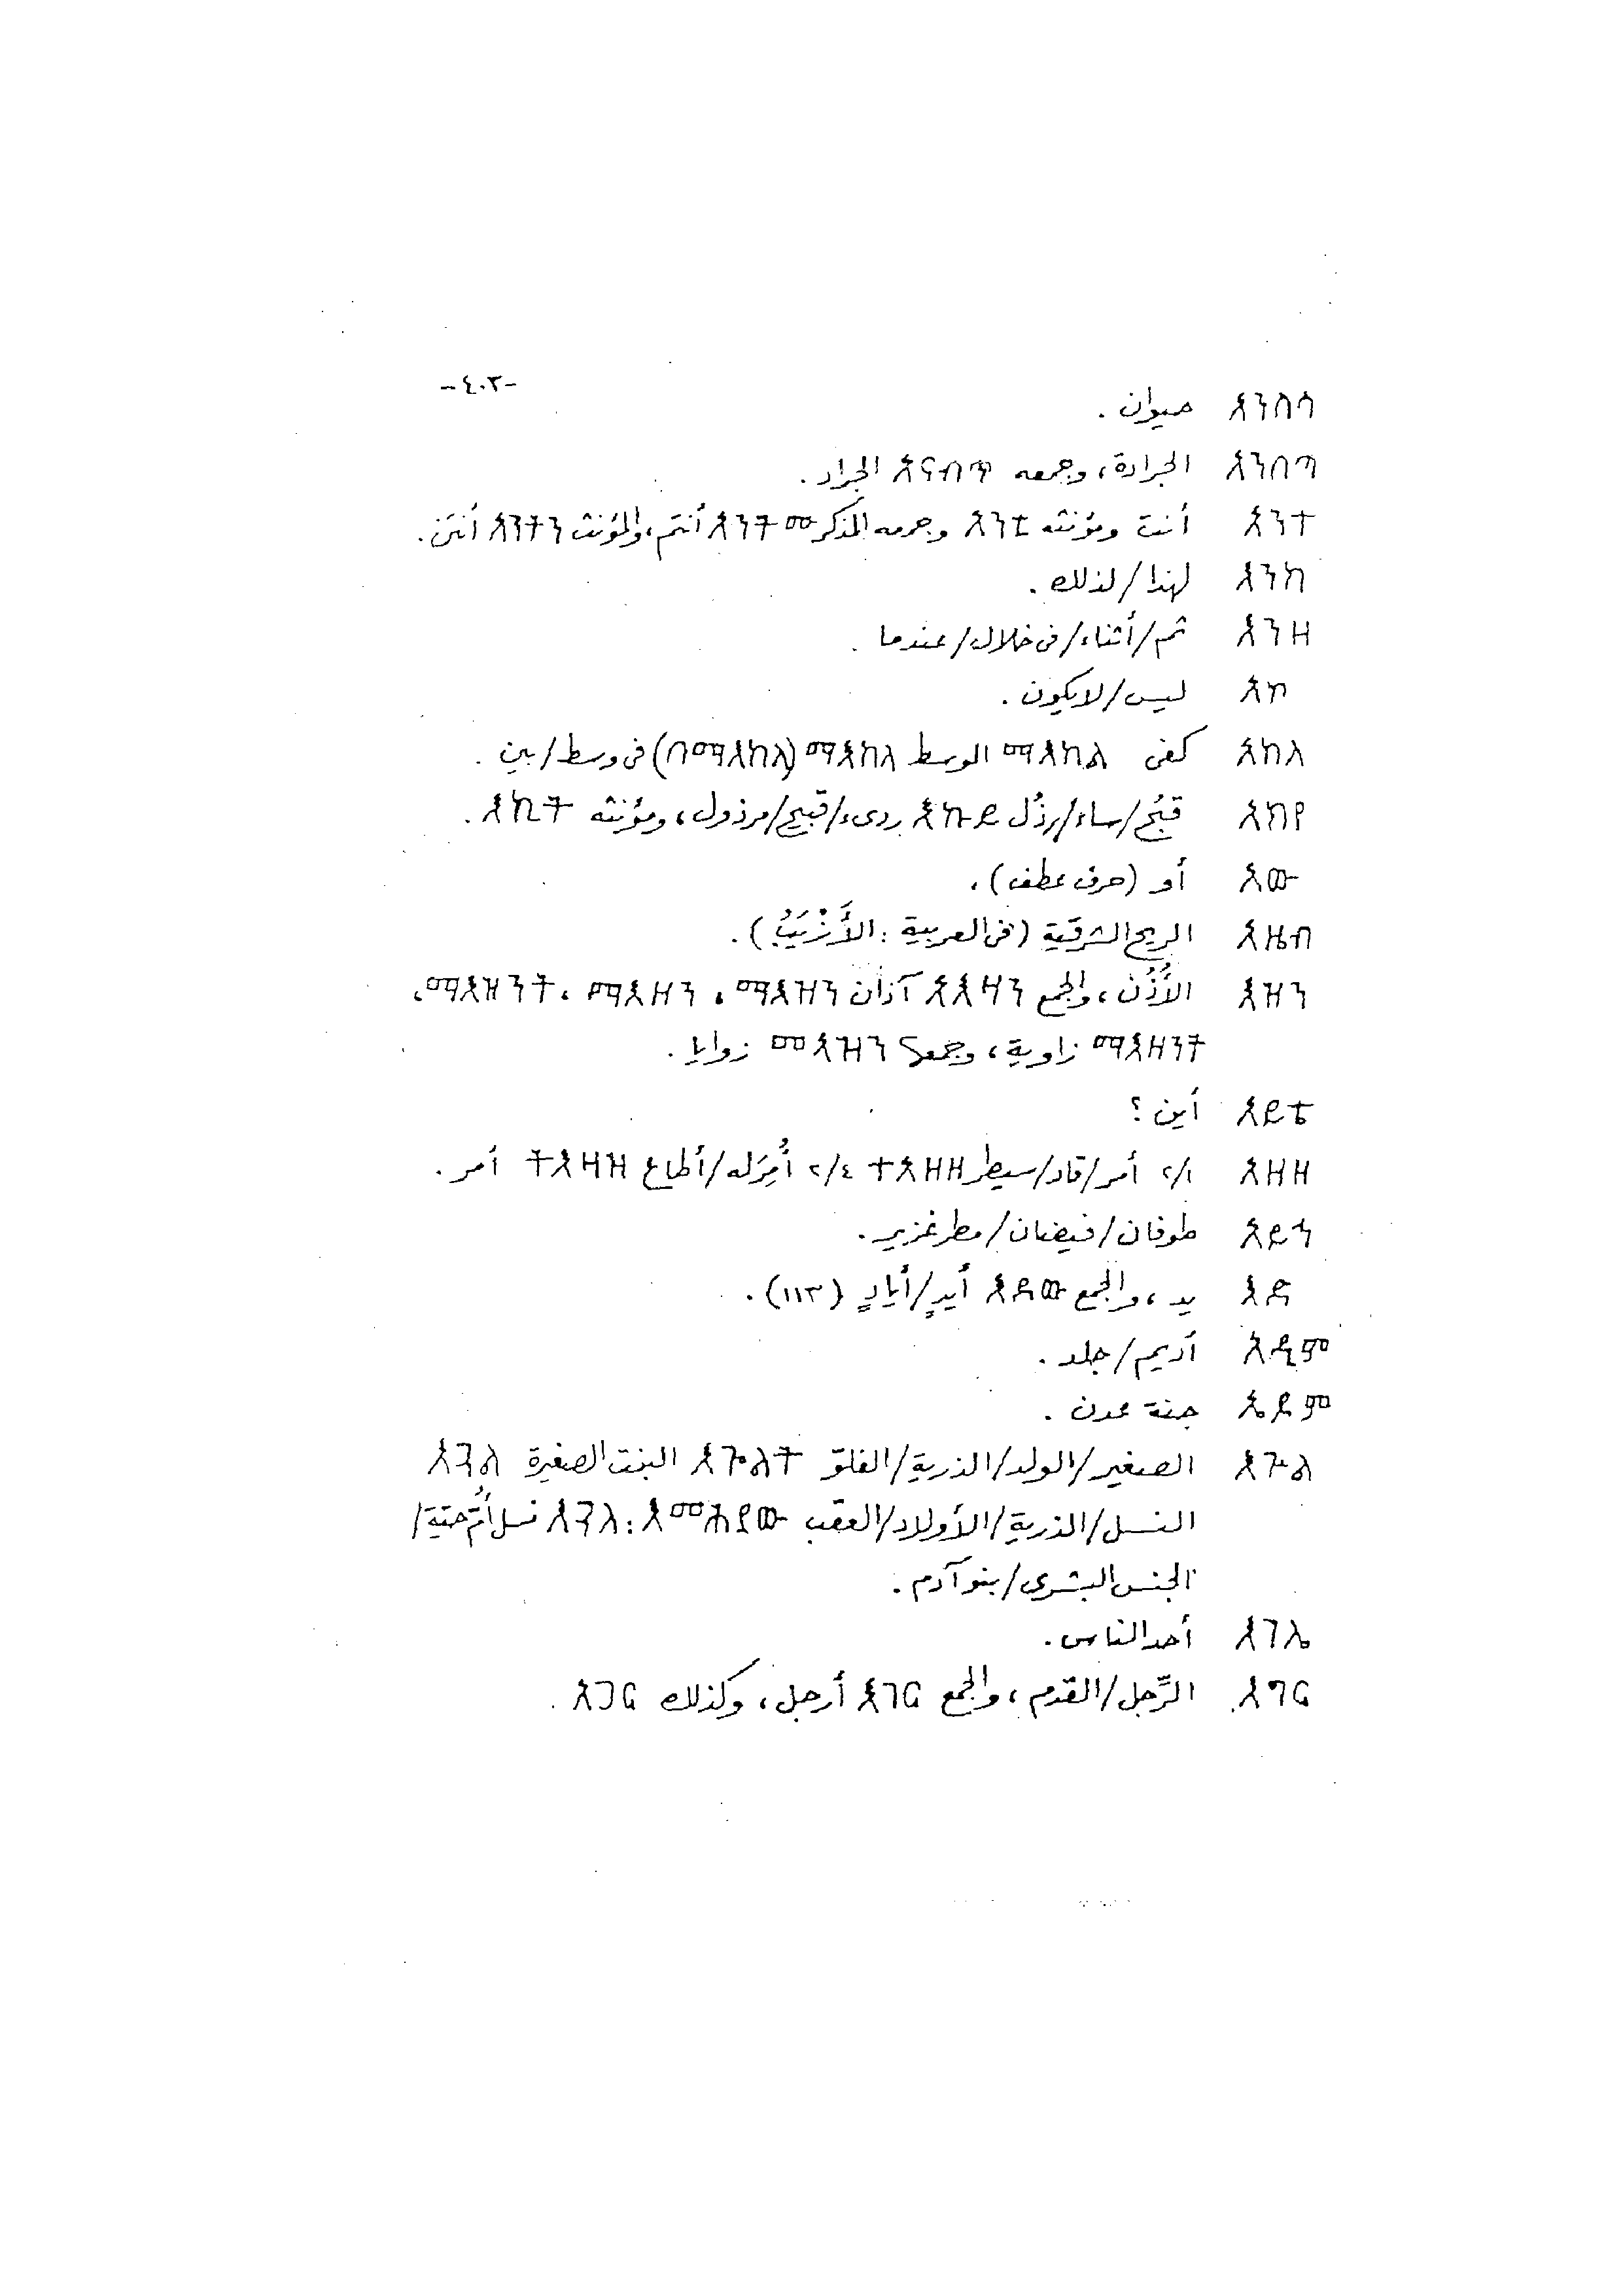 -٤٠٣-
እንስሳ حيوان .
አንበጣ الجرادة، وجمعه الجراد .
አንተ أنت ومؤنثه አንቲ وجمعه المذكر አንትሙ أنتم، والمؤنث አንትን أنتن .
እንከ لهذا/لذلك .
እንዘ ثم/أثناء/فى خلال/عندما .
አኮ ليس/لا يكون .
አከለ كفى ማእከል الوسط ማእከለ (በማእከለ) فى وسط/بين .
አከየ قبُح/ساء/رذُل እኩይ ردىء/قبيح/مرذول، ومؤنثه እኪት .
አው أو (حرف عطف) .
አዜብ الريح الشرقية (فى العربية : الأَزْيَبُ) .
እዝን الأُذُن، والجمع አእዛን آذان
زاوية، وجمعها زوايا .
አይቴ أين ؟
አዘዘ ٢/١ أمر/قاد/سيطر ተአዘዘ ٢/٤ أُمِرَله/أطاع ትእዛዝ أمر .
አይኅ طوفان/فيضان/مطر غزير .
እድ يد، والجمع እደው أيدٍ/أيادٍ (١١٣) .
አዲም أديم/جلد .
ኤዶም جنة عدن .
እጓል الصغير/الولد/الذرية/الفلق እጓልት البنت الصغيرة እጓለ
النسل/الذرية/الأولاد/العقب እጓለ፡እመሕያው نسل أُمّ حيّة/
الجنس البشرى/بنو آدم .
እገሌ أحد الناس .
እግር الرِّجل/القدم، والجمع አእጋር أرجل، وكذلك አገር .